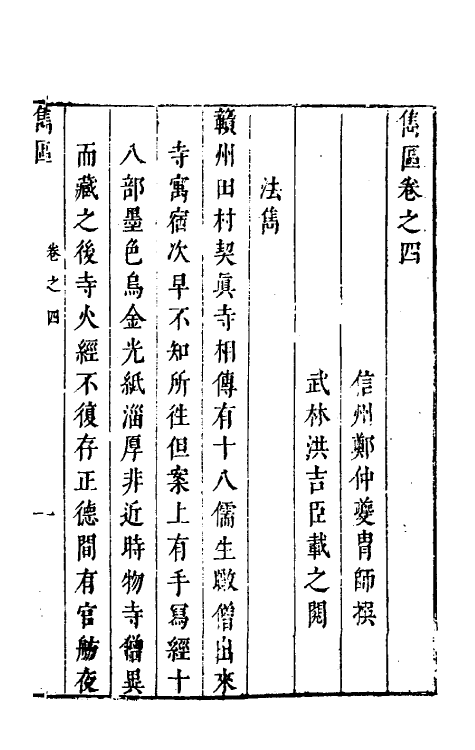 雋區卷之四
信州鄭仲夔胄師撰
武林洪吉臣載之閱
法雋
贛州田村契眞寺相傳有十八儒生敺僧出來
寺寓宿次早不知所徃但案上有手寫經十
八部墨色烏金光紙淄厚非近時物寺僧異
而藏之後寺火經不復存正德間有官舫夜
雋區
卷之四
一